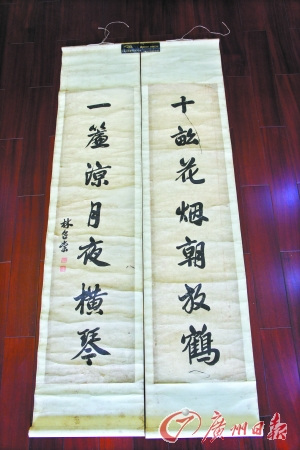 十畝花烟朝放鶴
一簾涼月夜橫琴
林召棠
廣州日报